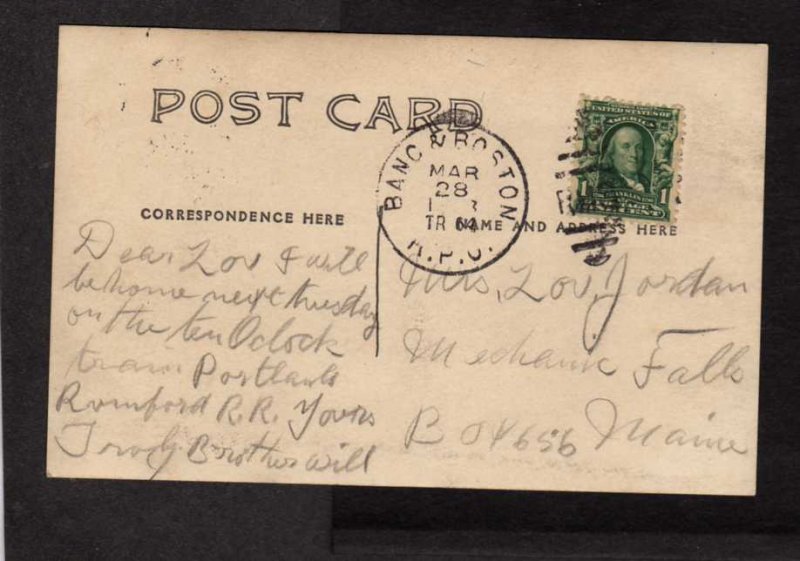 POST CARD
BANG & BOSTON
MAR
28
TR 64
R.P.O.
UNITED STATES OF AMERICA
FRANKLIN
1 1
CORRESPONDENCE HERE
NAME AND ADDRESS HERE
Dear Lov I will
be home next tuesday
on the ten Oclock
train Portland
Rumford R.R. Yours
Truly Brother will
Mrs, Lov, Jordan
Mechanic Falls
B 0 Maine